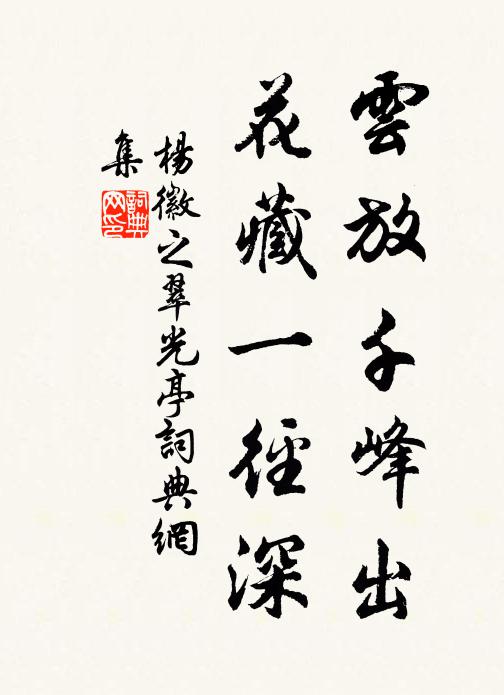 雲放千峰出
花藏一徑深
楊徽之翠光亭詞典網
集
詞典
网印